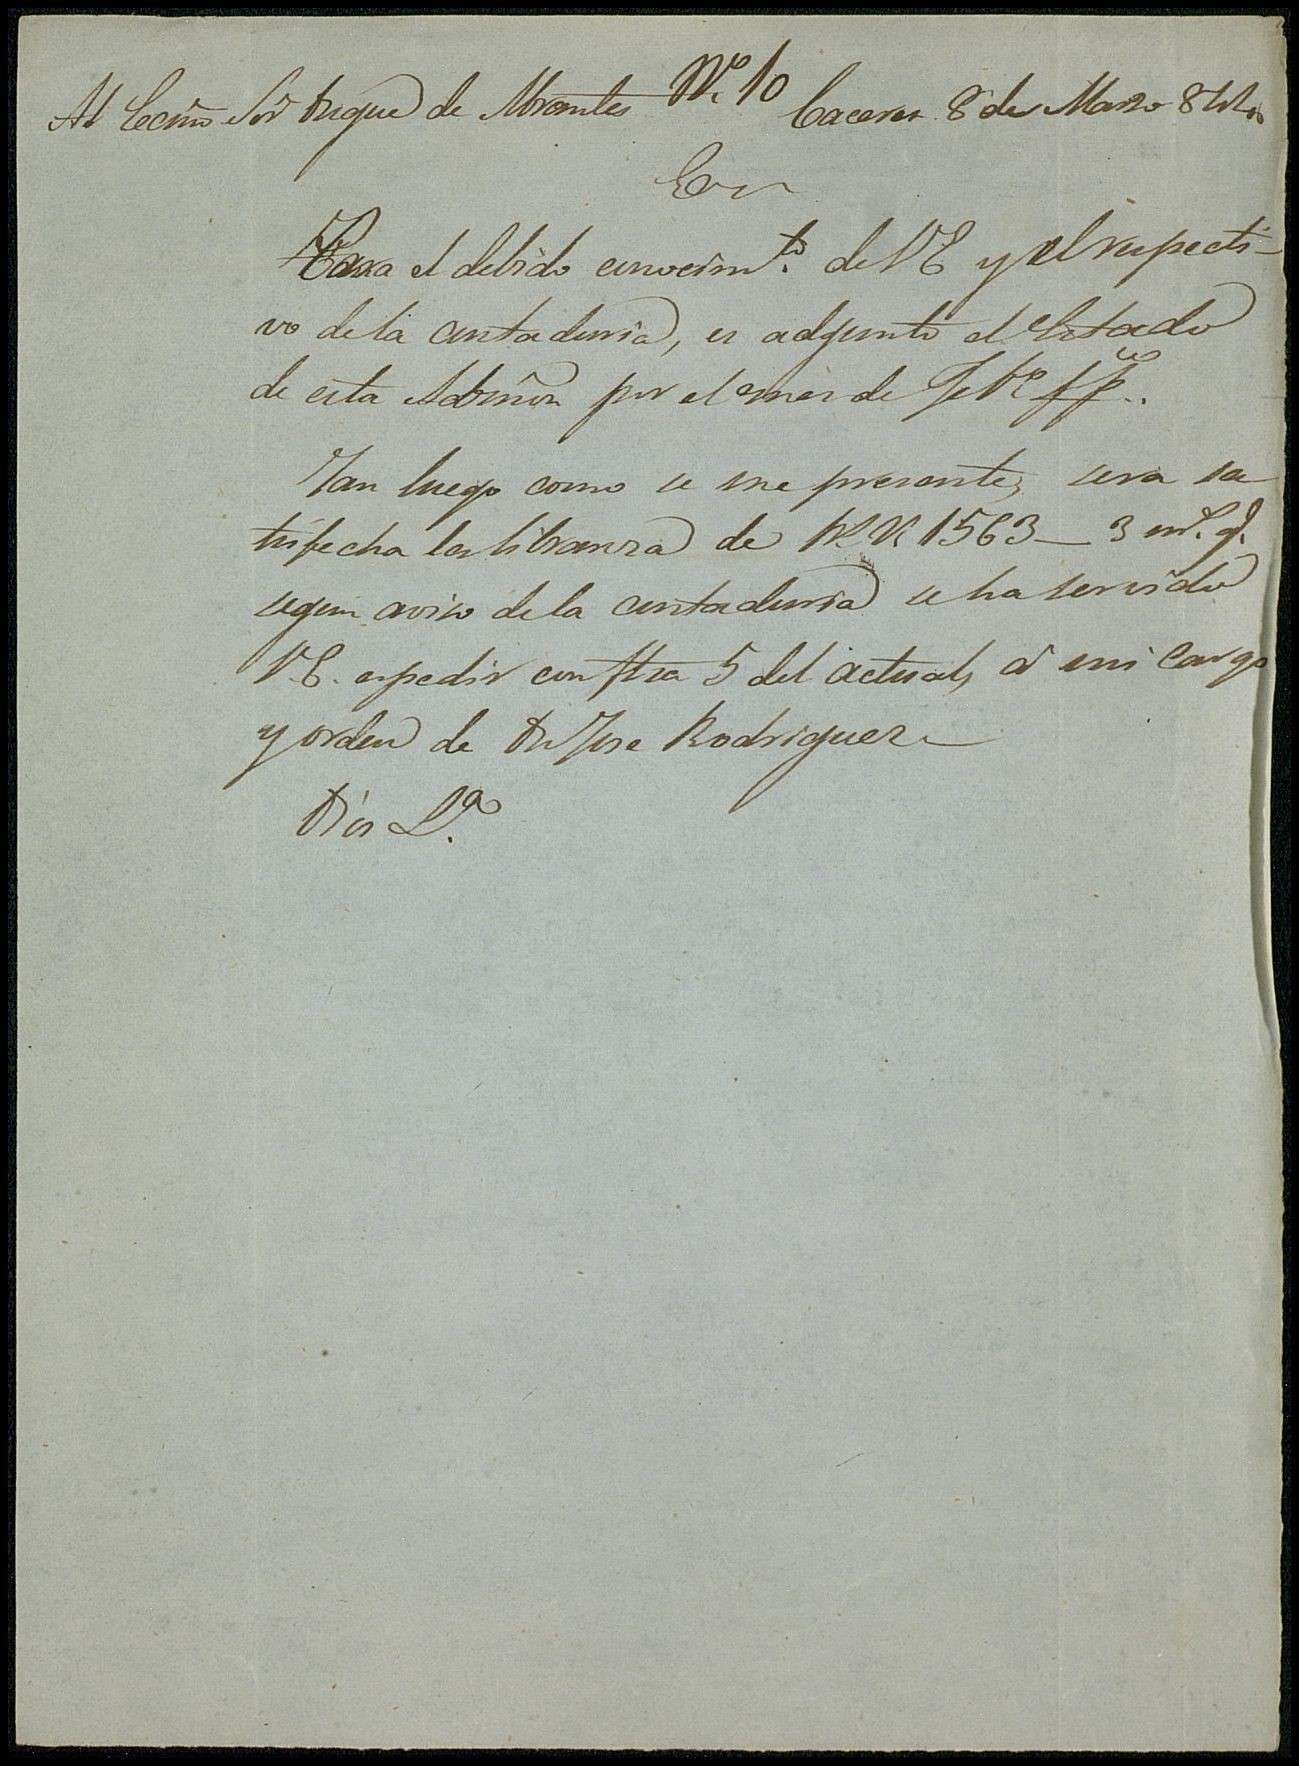 Al Ecmo Sor Duque de Abrantes Nº 10 Caceres 8 de Marzo 844
Para el debido conocimto. de VE y el respecti-
vo de la contaduria, es adjunto el Estado
de esta Admon por el mes de
Tan luego como se me presente, sera sa
tisfecha la libranza de Rs Vn 1563_ 3 mrs. q.
segun aviso de la contaduria se ha servido
V.E. espedir con fha 5 del actual, á mi cargo
y orden de Dn Jose Rodriguez
Dios